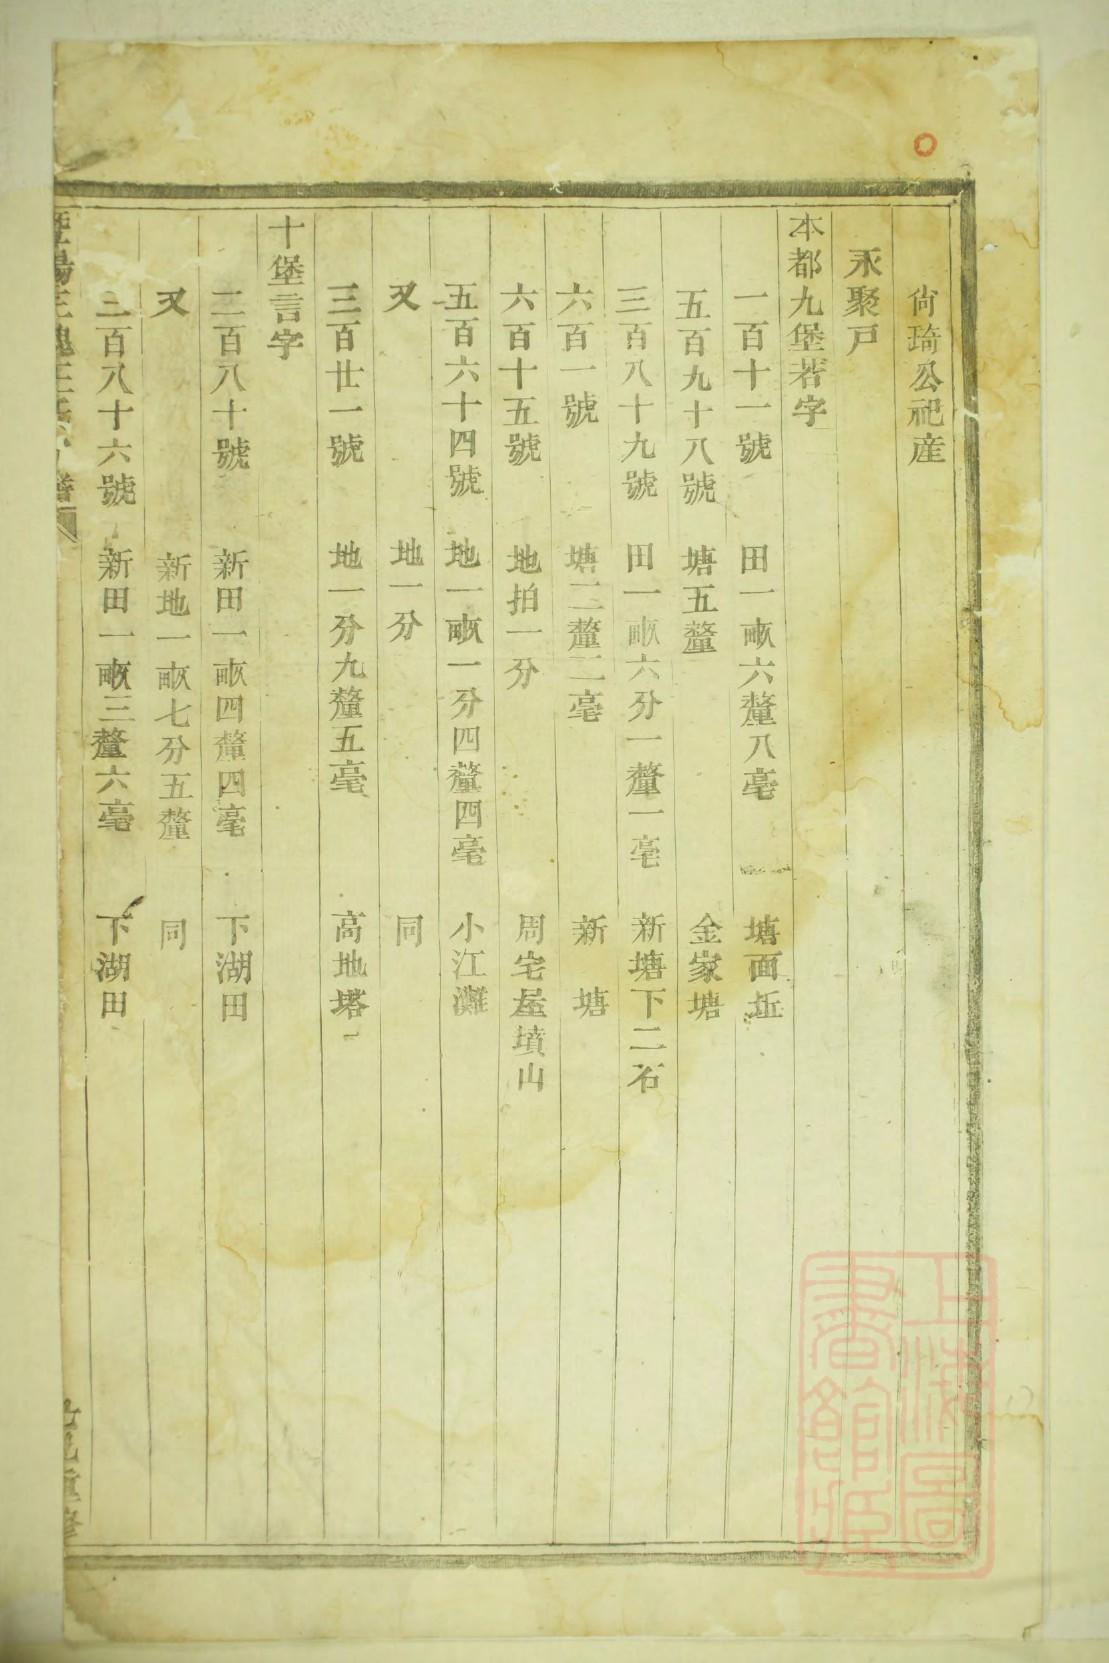 尙琦公祀産
永聚戸
本都九堡若字
一百十一號 田一畝六釐八毫 塘面坵
五百九十八號 塘五釐 金家塘
三百八十九號 田一畝六分一釐一毫 新塘下二石
六百一號 塘二釐二毫 新塘
六百十五號 地拍一分 周宅屋墳山
五百六十四號 地一畝一分四釐四毫 小江灘
又 地一分 同
三百廿一號 地一分九釐五毫 高地塔
十堡言字
二百八十號 新田一畝四釐四毫 下湖田
又 新地一畝七分五釐 同
二百八十六號 新田一畝三釐六毫 下湖田
上海圖書館藏